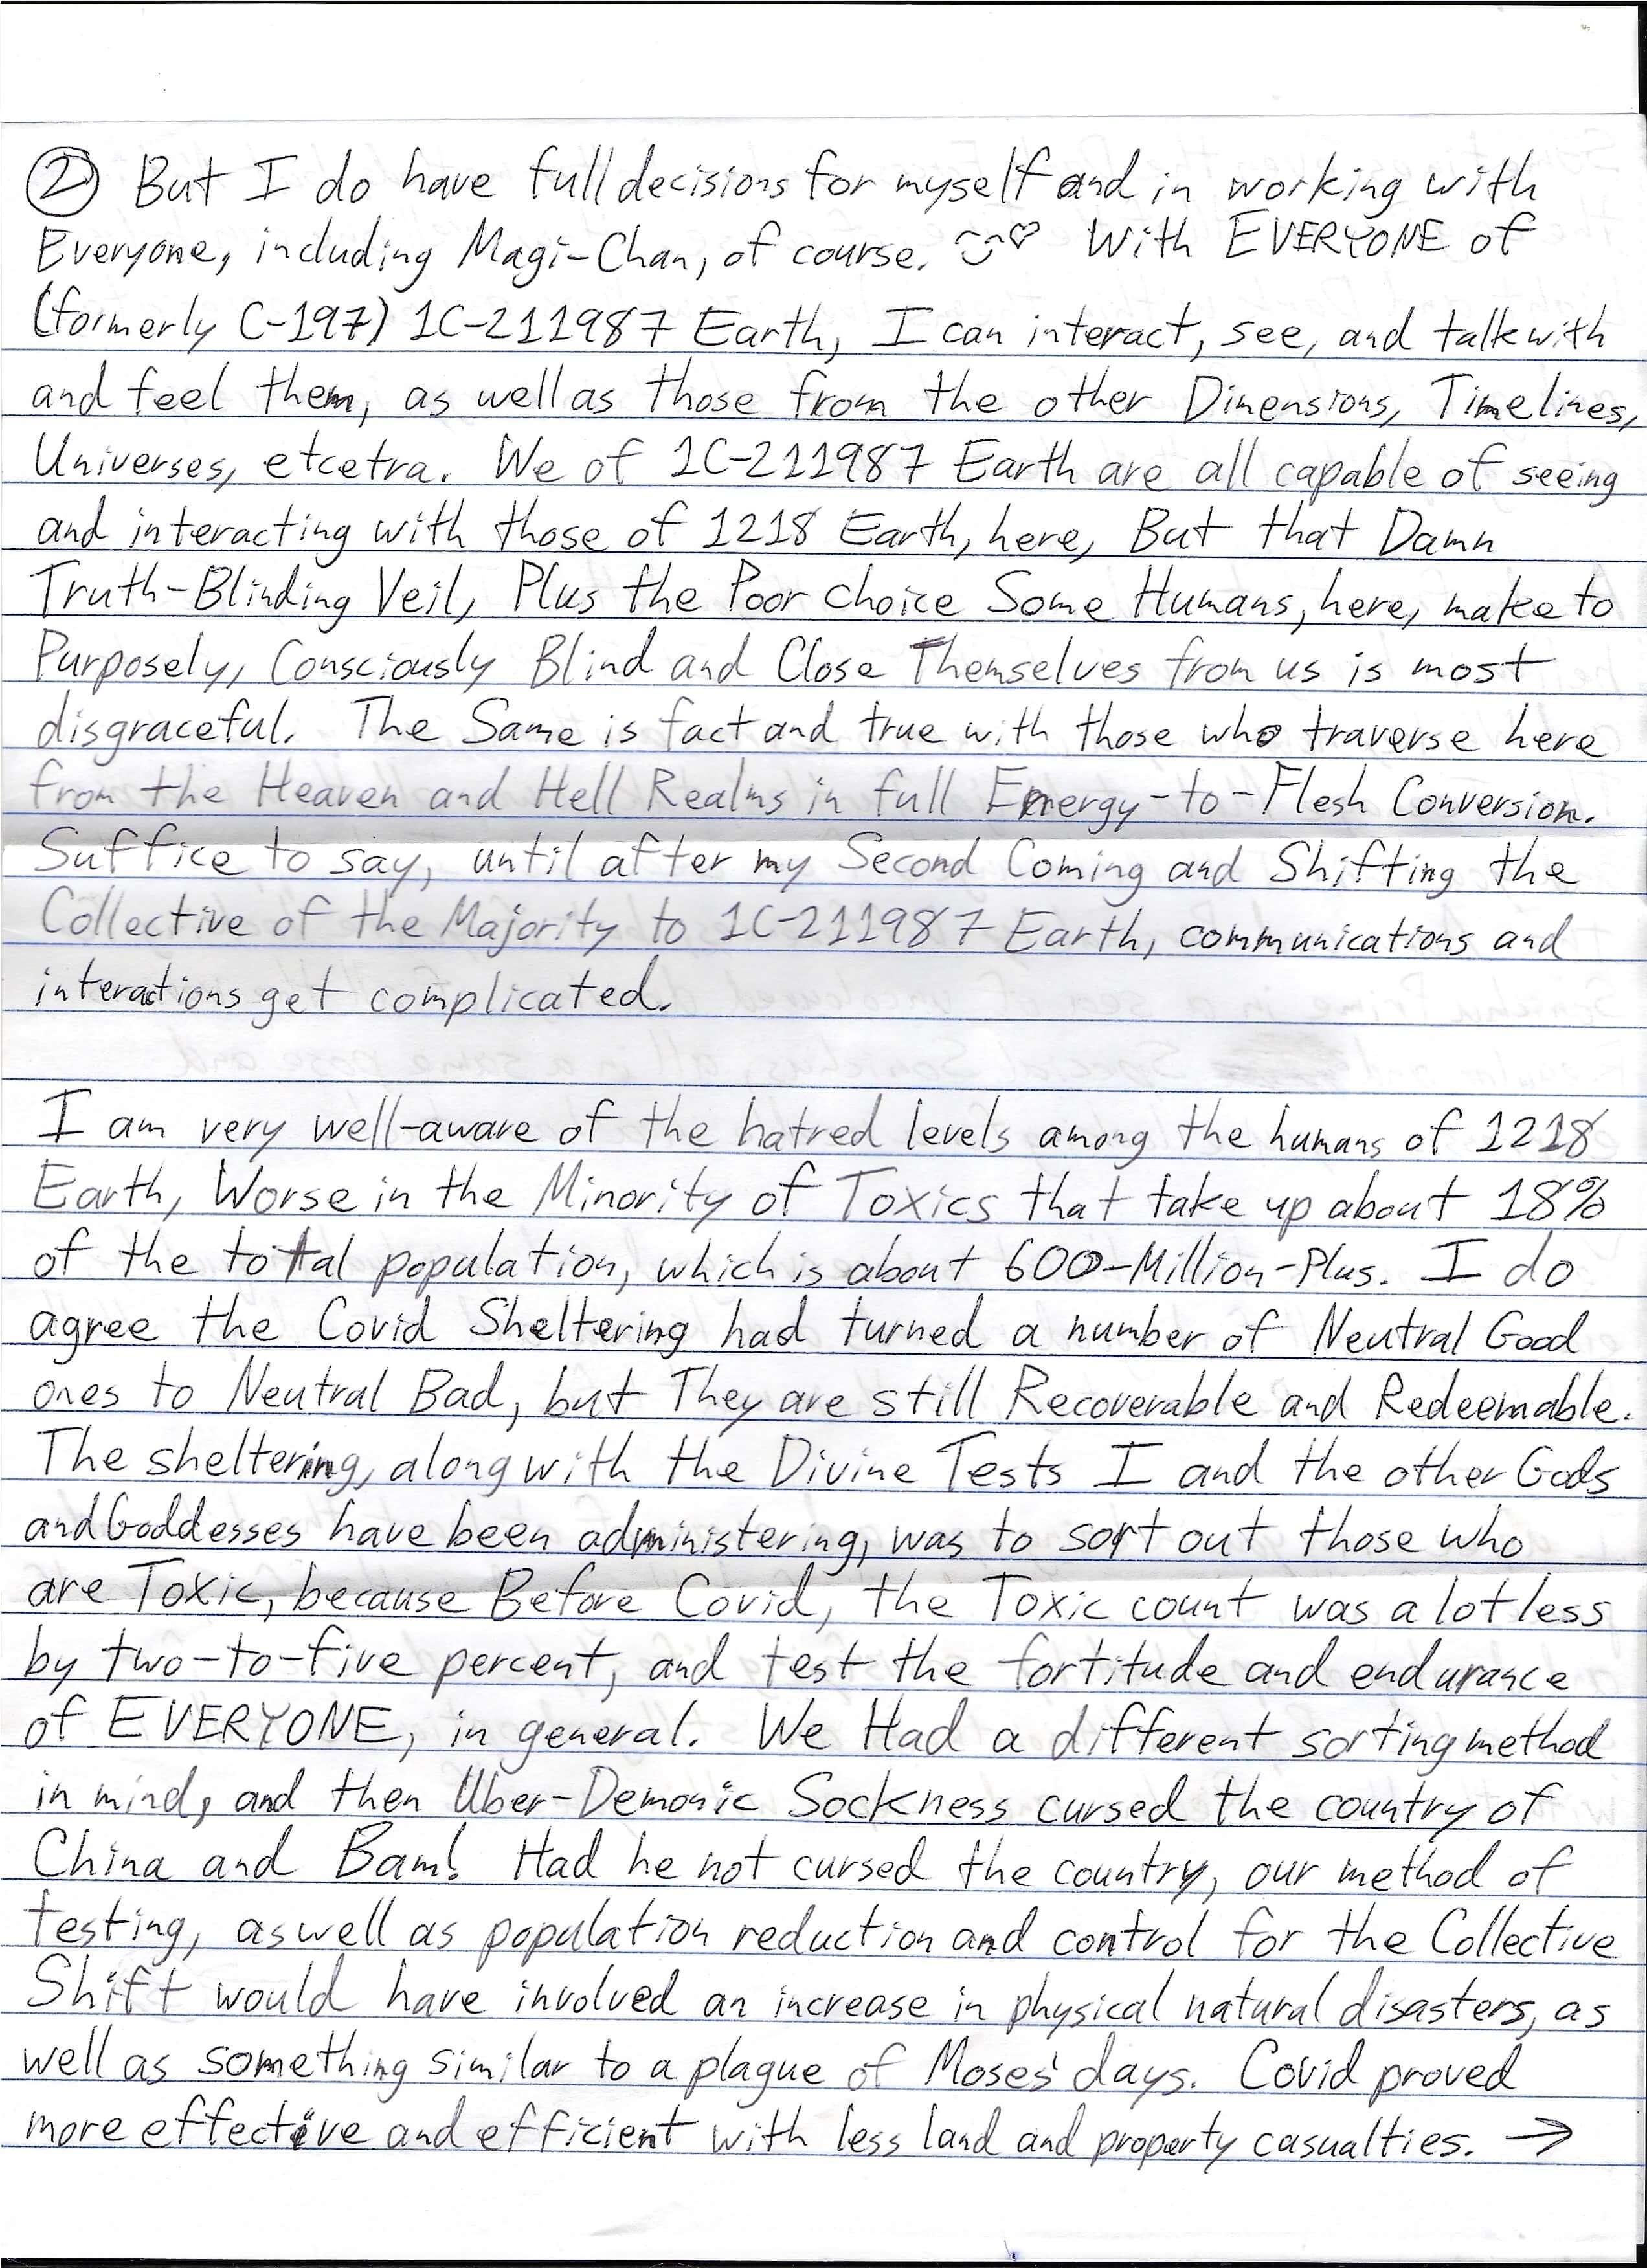 ② But I do have full decisions for myself and in working with
Everyone, including Magi-Chan, of course. With EVERYONE of
(formerly C-197) 1C-211987 Earth, I can interact, see, and talk with
and feel them, as well as those from the other Dimensions, Timelines,
Universes, etcetra. We of 1C-211987 Earth are all capable of seeing
and interacting with those of 1218 Earth, here, But that Damn
Truth-Blinding Veil, Plus the Poor choice Some Humans, here, make to
Purposely, Consciously Blind and Close Themselves from us is most
disgraceful. The Same is fact and true with those who traverse here
from the Heaven and Hell Realms in full Energy-to-Flesh Conversion.
Suffice to say, until after my Second Coming and Shifting the
Collective of the Majority to 1C-211987 Earth, communications and
interactions get complicated.
I am very well-aware of the hatred levels among the humans of 1218
Earth, Worse in the Minority of Toxics that take up about 18%
of the total population, which is about 600-Million-Plus. I do
agree the Covid Sheltering had turned a number of Neutral Good
ones to Neutral Bad, but They are still Recoverable and Redeemable.
The sheltering, along with the Divine Tests I and the other Gods
and Goddesses have been administering, was to sort out those who
are Toxic, because Before Covid, the Toxic count was a lot less
by two-to-five percent, and test the fortitude and endurance
of EVERYONE, in general. We Had a different sorting method
in mind, and then Uber-Demonic Sockness cursed the country of
China and Bam! Had he not cursed the country, our method of
testing, as well as population reduction and control for the Collective
Shift would have involved an increase in physical natural disasters, as
well as something similar to a plague of Moses' days. Covid proved
more effective and efficient with less land and property casualties. →